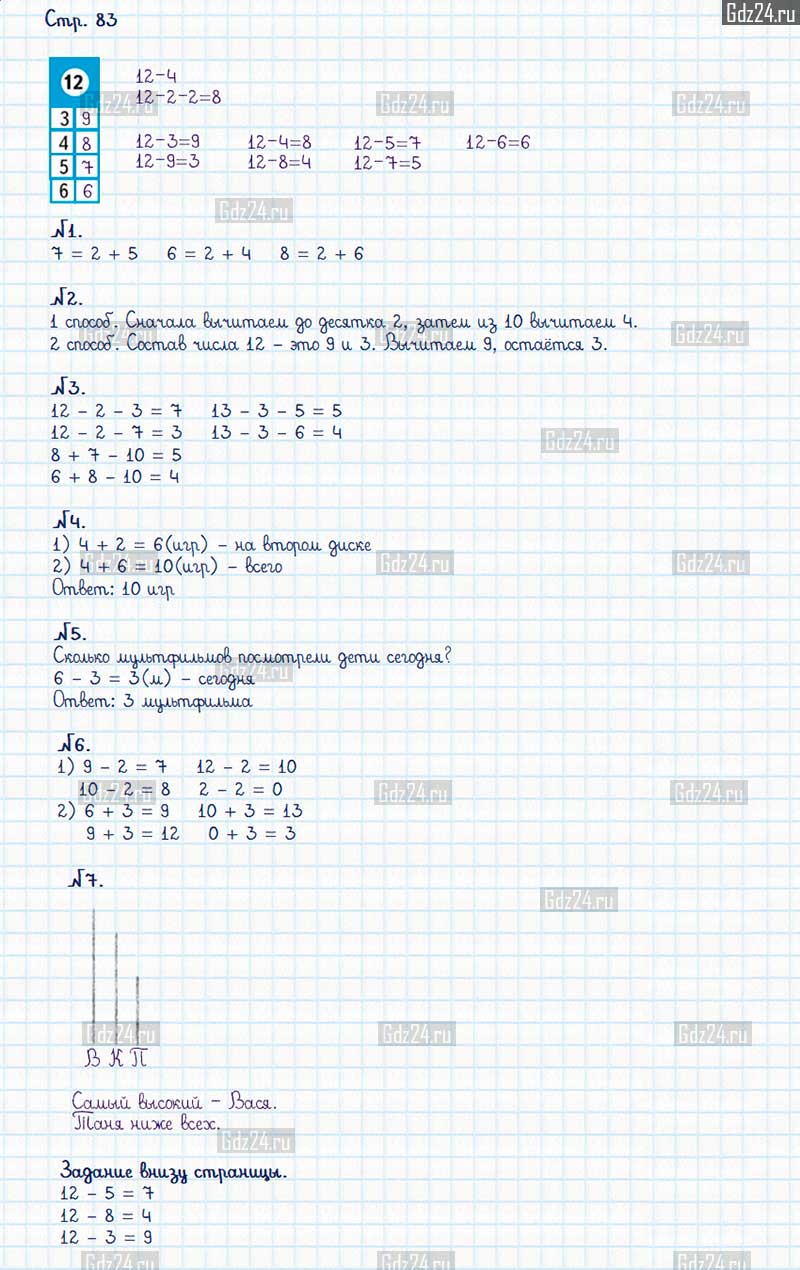 Gdz24.ru
Стр. 83
12 12-4
12-2-2=8
3 9
4 8 12-3=9 12-4=8 12-5=7 12-6=6
5 7 12-9=3 12-8=4 12-7=5
6 6
№1.
7 = 2 + 5 6 = 2 + 4 8 = 2 + 6
№2.
1 способ. Сначала вычитаем до десятка 2, затем из 10 вычитаем 4.
2 способ. Состав числа 12 – это 9 и 3. Вычитаем 9, остаётся 3.
№3.
12 - 2 - 3 = 7 13 - 3 - 5 = 5
12 - 2 - 7 = 3 13 - 3 - 6 = 4
8 + 7 - 10 = 5
6 + 8 - 10 = 4
№4.
1) 4 + 2 = 6(игр) - на втором диске
2) 4 + 6 = 10(игр) - всего
Ответ: 10 игр
№5.
Сколько мультфильмов посмотрели дети сегодня?
6 - 3 = 3(м) - сегодня
Ответ: 3 мультфильма
№6.
1) 9 - 2 = 7 12 - 2 = 10
10 - 2 = 8 2 - 2 = 0
2) 6 + 3 = 9 10 + 3 = 13
9 + 3 = 12 0 + 3 = 3
№7.
В К П
Самый высокий - Вася.
Таня ниже всех.
Задание внизу страницы.
12 - 5 = 7
12 - 8 = 4
12 - 3 = 9